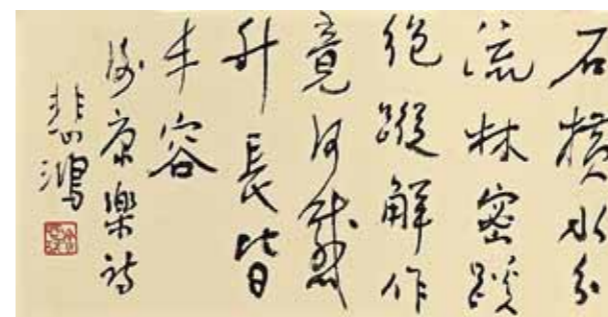 石横水分
流林密蹊
絶蹤解作
竟何感
升長皆
丰容
謝康樂詩
悲鴻